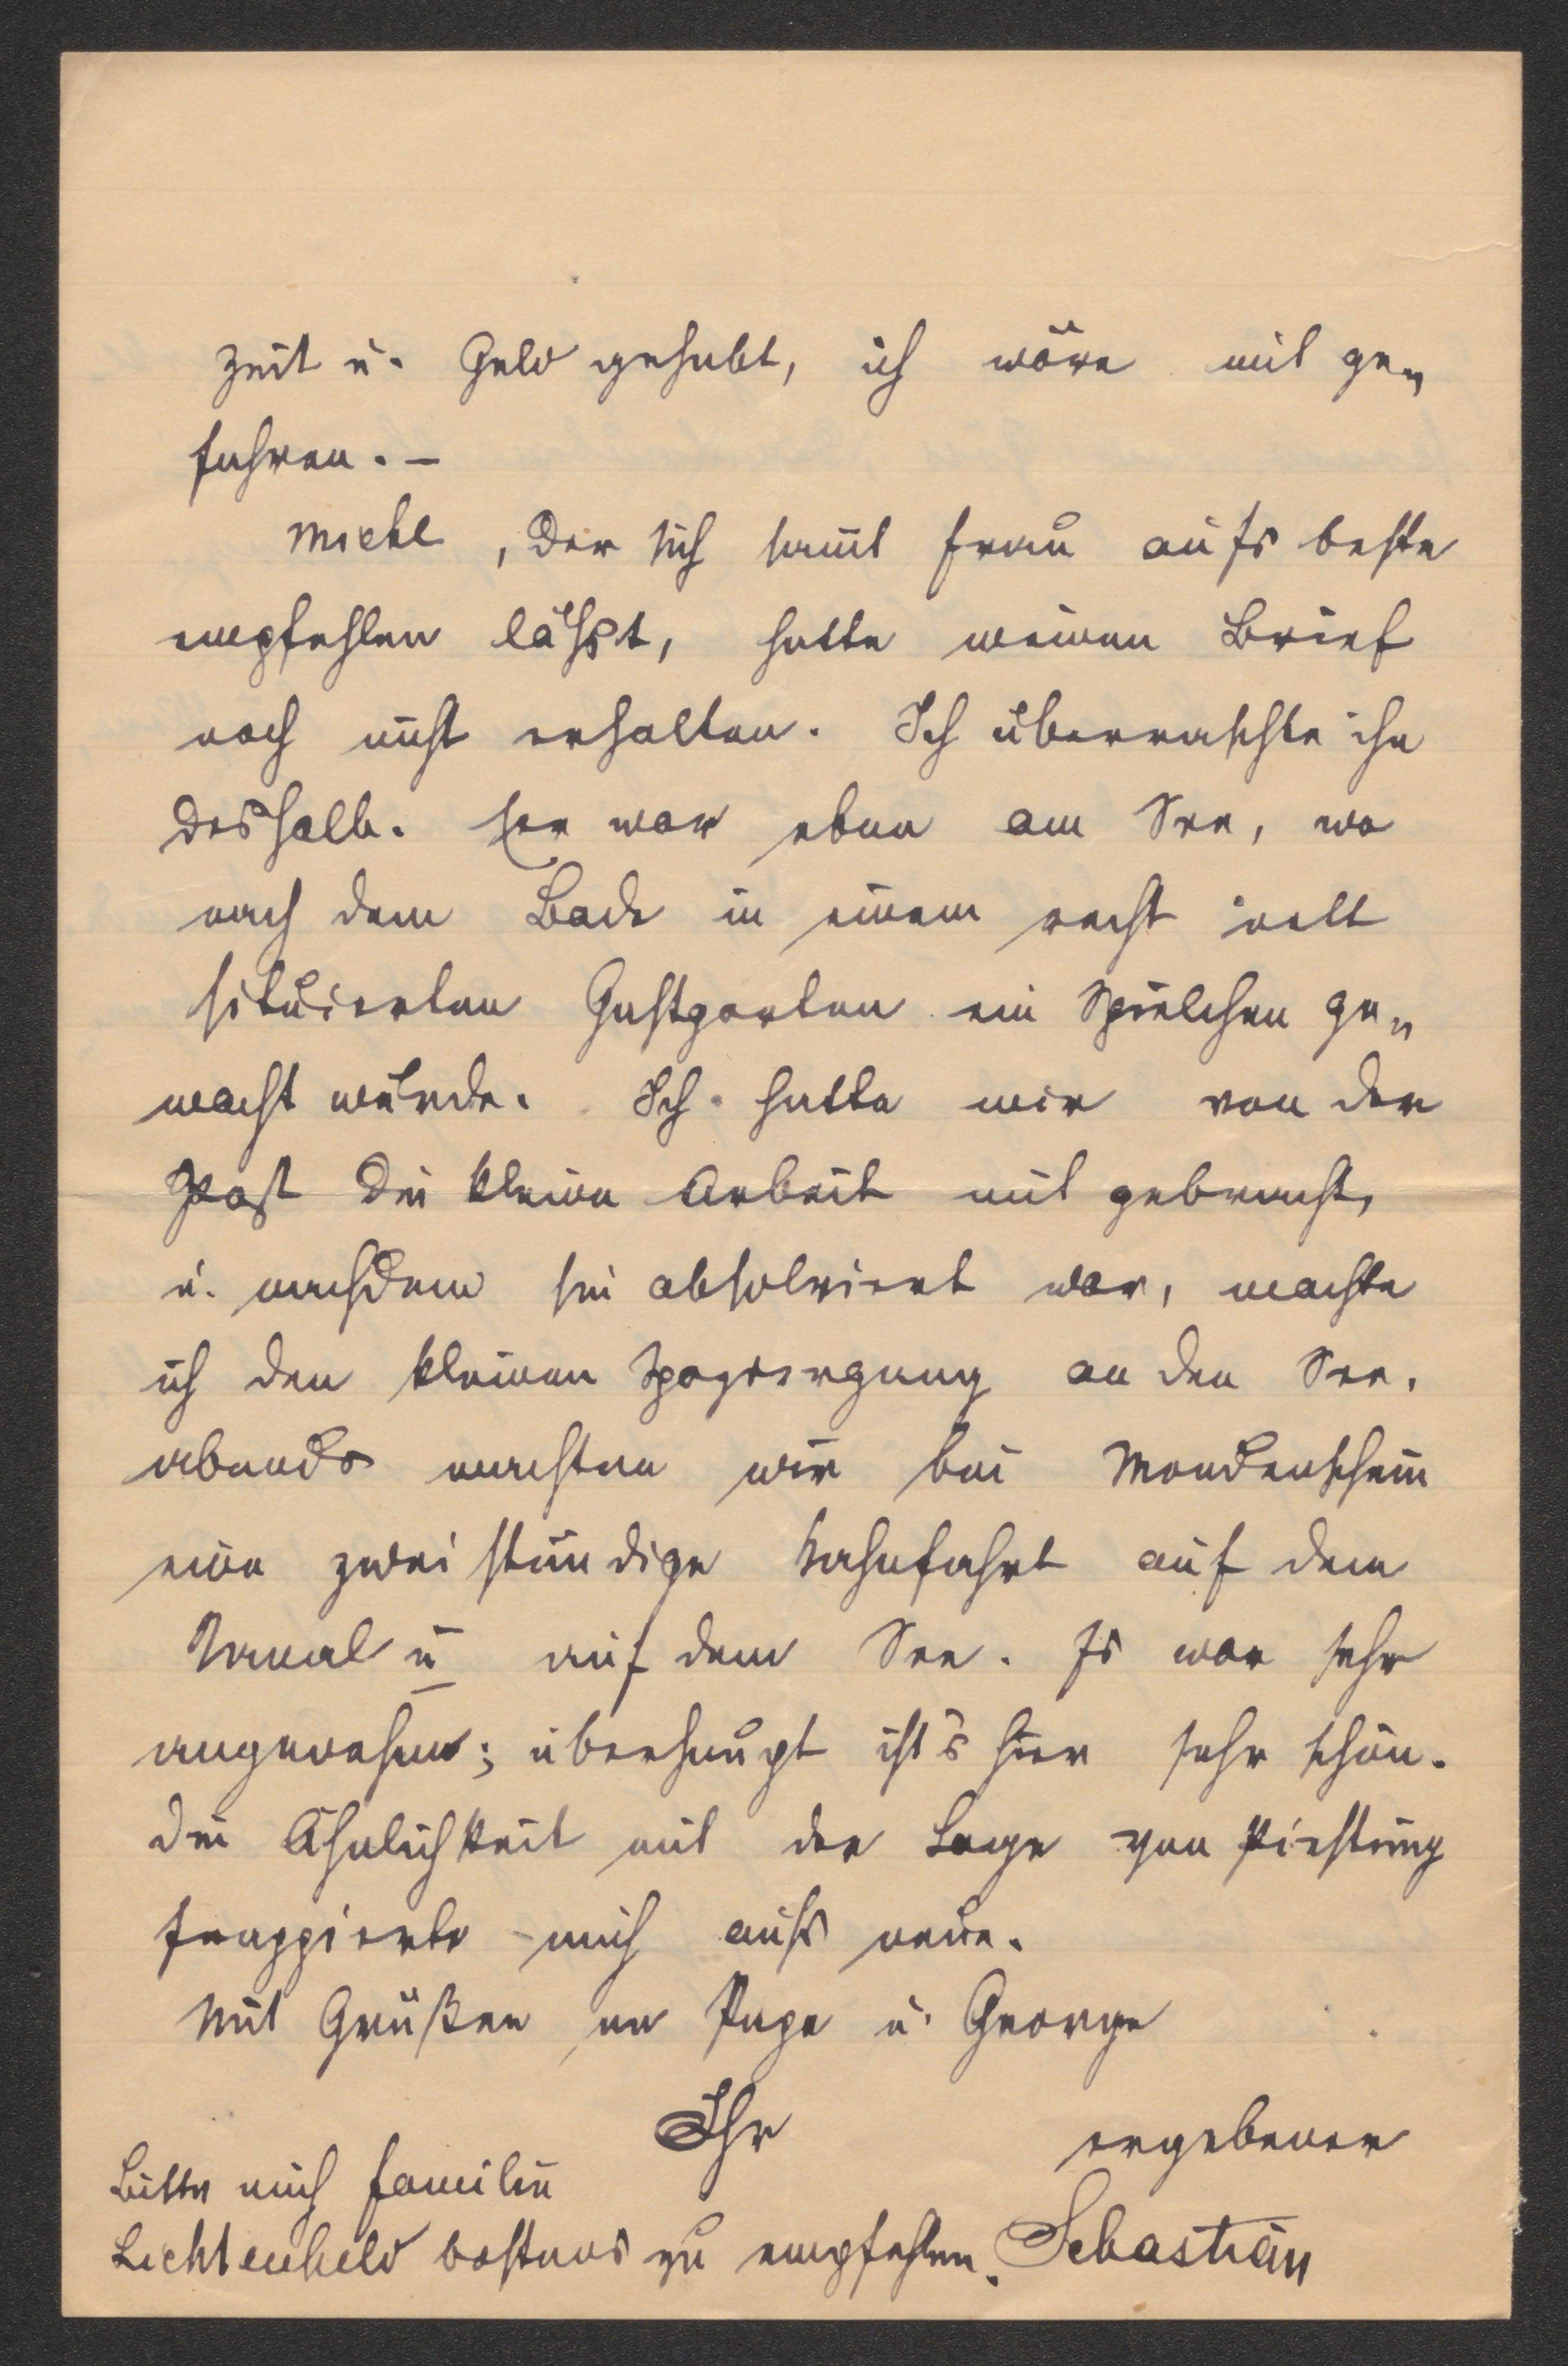 Zeit u. Geld gehabt, ich wäre mit ge„
fahren. –
Michl, der sich samt Frau aufs beste
empfehlen läßt, hatte meinen Brief
noch nicht erhalten. Ich überraschte ihn
deshalb. Er war eben am See, wo
nach dem Bade in einem recht nett
situierten Gastgarten ein Spielchen ge„
macht wurde. Ich hatte mir von der
Post die kleine Arbeit mit gebracht,
u. nachdem sie absolviert war, machte
ich den kleinen Spaziergang an den See.
abends machten wir bei Mondenschein
eine zweistündige Kahnfahrt auf dem
Kanal u auf dem See. Es war sehr
angenehm; überhaupt ist's hier sehr schön.
die Ähnlichkeit mit der Lage von Piesting
frappierte mich aufs neue.
Mit Grüßen an Papa u. George
Ihr ergebener
Bitte mich Familie
Lichtenheld bestens zu empfehlen. Sebastian